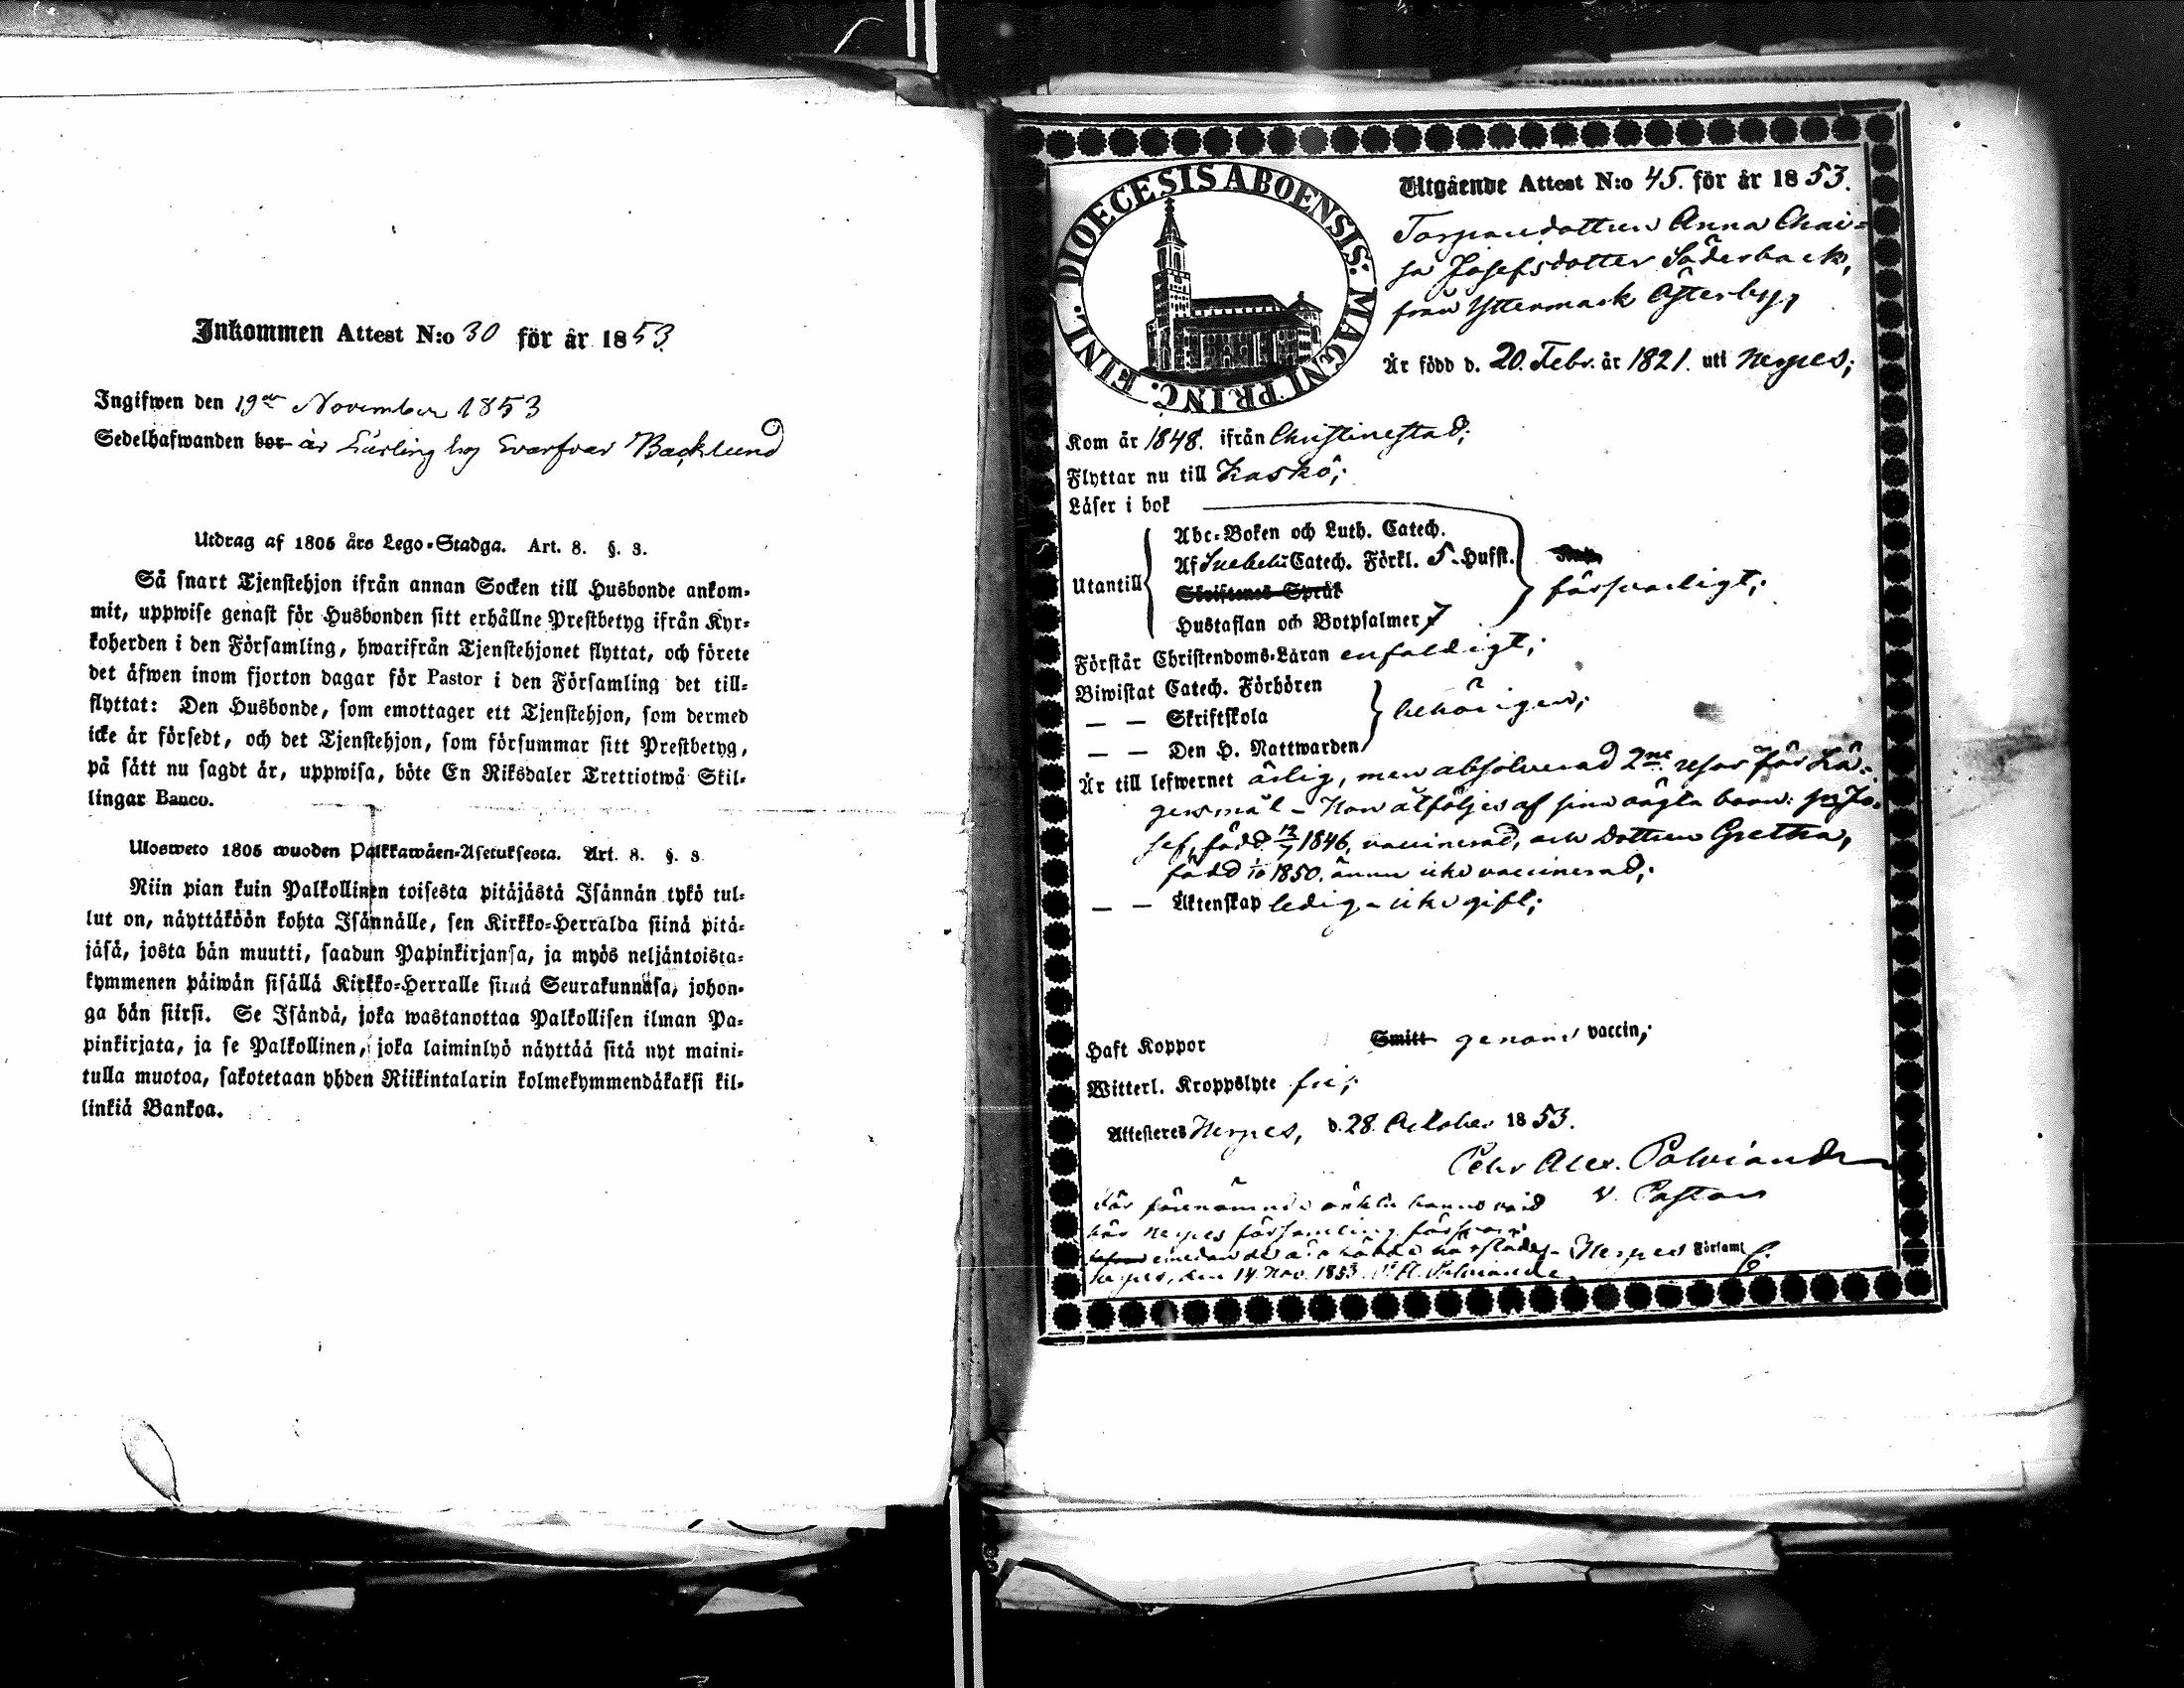 Inkommen Attest N:o 30 för år 1853.
Ingifwen den 19de November 1853
Sedelhafwanden bor är Lärling hos Svarfvar Backlund
Utdrag af 1805 års Lego-Stadga. Art. 8. §. 3.
Så snart Tjenstehjon ifrån annan Socken till Husbonde ankom-
mit, uppwise genast för Husbonden sitt erhållne Prestbetyg ifrån Kyr-
koherden i den Församling, hwarifrån Tjenstehjonet flyttat, och förete
det äfwen inom fjorton dagar för Pastor i den Församling det till-
flyttat: Den Husbonde, som emottager ett Tjenstehjon, som dermed
icke är försedt, och det Tjenstehjon, som försummar sitt Prestbetyg,
på sätt nu sagdt är, uppwisa, böte En Riksdaler Trettiotwå Skil-
lingar Banco.
Ulosweto 1805 wuoden Palkkawäen-Asetuksesta. Art. 8. §. 3
Niin pian kuin Palkollinen toisesta pitäjästä Isännän tykö tul-
lut on, näyttäköön kohta Isännälle, sen Kirkko-Herralda siinä pitä-
jäsä, josta hän muutti, saadun Papinkirjansa, ja myös neljäntoista-
kymmenen päiwän sisällä Kirkko-Herralle siinä Seurakunnasa, johon-
ga hän siirsi. Se Isändä, joka wastanottaa Palkollisen ilman Pa-
pinkirjata, ja se Palkollinen, joka laiminlyö näyttää sitä nyt maini-
tulla muotoa, sakotetaan yhden Riikintalarin kolmekymmendäkaksi kil-
linkiä Bankoa.
DIOECESIS ABOENSIS. MAGNI PRINC. FINL.
Utgående Attest N:o 45. för år 1853.
Torparedottren Anna Chai-
sa Josefsdotter Söderback,
från Yttermark Österby,
Är född d. 20. Febr. år 1821. uti Nerpes;
Kom år 1848. ifrån Christinestad;
Flyttar nu till Kaskö;
Läser i bok
Utantill
Abc-Boken och Luth. Catech.
Af Svebelii Catech. Förkl. 5 Hufst.
Skriftenes Språk
Hustaflan och Botpsalmer 7
försvarligt;
Förstår Christendoms-Läran enfaldigt;
Biwistat Catech. Förhören
— — Skriftskola
— — Den H. Nattwarden
behörigen;
Är till lefwernet ärlig, men absolverad 2ne resor för Lä-
gersmål - Hon åtföljes af sina oägta barn: Jo-
sef, född 12/7 1846, vaccinerad, och Dottren Gretha,
född 1850. ännu icke vaccinerad;
— — Äktenskap ledig - icke gift;
Haft Koppor Smitt genom vaccin;
Witterl. Kroppslyte fri;
Attesteres Nerpes, d. 28. October 1853.
Petr Alex. Solviander
V. Pastor
För förenämnde oäkta barns vård
bär Nerpes församling försvar
emedan de äro födde härstädes - Nerpes Församl
Nerpes, den 14 Nov. 1853.